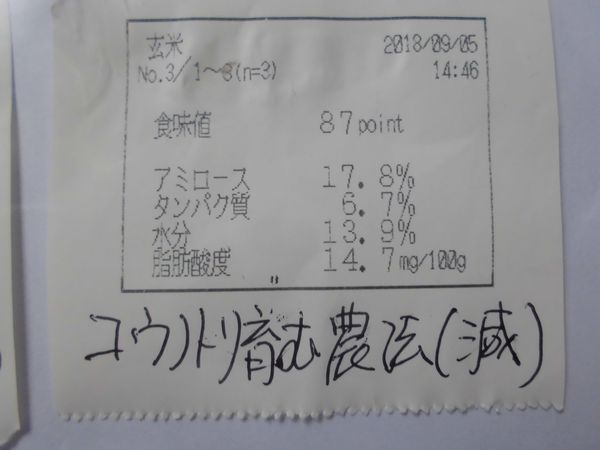 玄米 2018/09/05
No.3/1～3(n=3) 14:46
食味値 87point
アミロース 17.8%
タンパク質 6.7%
水分 13.9%
脂肪酸度 14.7mg/100g
コウノトリ育む農法(減)